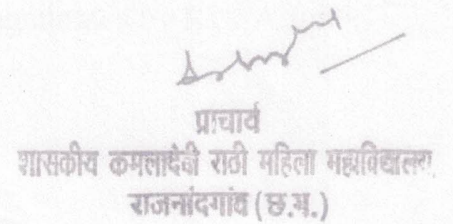 प्राचार्य
शासकीय कमलादेवी राठी महिला महाविद्यालय
राजनांदगांव (छ.ग.)